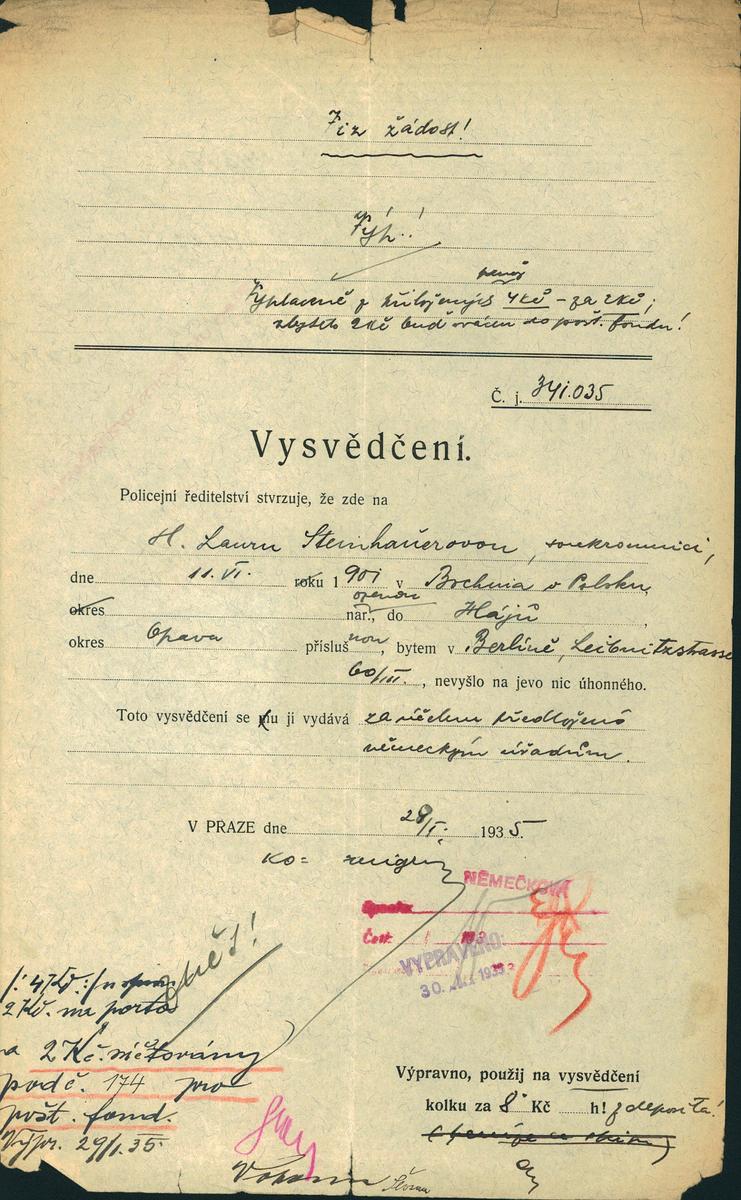 Viz žádost!
Výp.!
peněz
Vyplaceně z přiložených 4 Kč - za 2 Kč;
zbytek 2 Kč buď vrácen do pošt. fondu!
Č. j. 341.035
Vysvědčení.
Policejní ředitelství stvrzuje, že zde na
H. Lauru Steinhauerovou, soukromnici,
dne 11. VI. roku 1901 v Bochnia v Polsku
okres nar., do Hájů
okres Opava příslušnou, bytem v Berlíně, Leibnitzstrasse
60/III., nevyšlo na jevo nic úhonného.
Toto vysvědčení se mu ji vydává za účelem předložení
německým úřadům.
V PRAZE dne 28/I. 1935.
NĚMEČKOVÁ
Čet. 193
VYPRAVENO:
30. 1935
2 Kč. na porto
a 2 Kč. účtovány
pod č. 174 pro
pošt. fond.
Výpr. 29/I. 35.
Výpravno, použij na vysvědčení
kolku za 8 Kč h! z deposita!